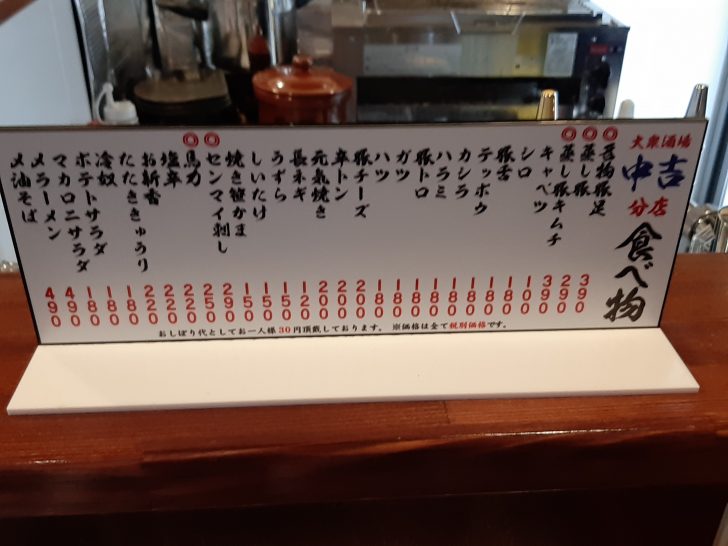 大衆酒場
中吉
分店
食べ物
◎名物豚足 390
◎蒸し豚 290
◎蒸し豚キムチ 390
キャベツ 100
シロ 180
豚舌 180
テッポウ 180
カシラ 180
ハラミ 180
豚トロ 180
ガツ 180
ハツ 180
豚チーズ 200
辛トン 200
元気焼き 200
長ネギ 120
うずら 150
しいたけ 150
焼き笹かま 150
◎センマイ刺し 290
◎馬力 250
塩辛 220
お新香 220
たたききゅうり 220
冷奴 180
ポテトサラダ 180
マカロニサラダ 180
〆ラーメン 490
〆油そば 490
おしぼり代としてお一人様30円頂戴しております。 ※価格は全て税別価格です。